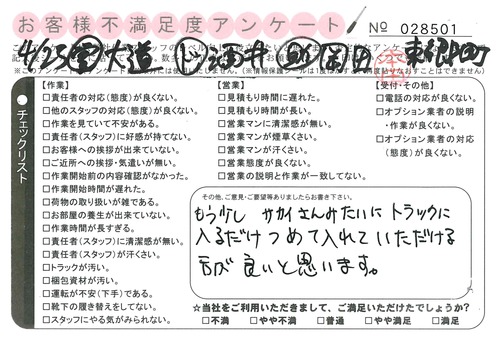 お客様不満足度アンケート
No 028501
4/25 大道 酒井 岡田 東郷町
チェックリスト
【作業】
□責任者の対応(態度)が良くない。
□他のスタッフの対応(態度)が良くない。
□作業を見ていて不安がある。
□責任者(スタッフ)に好感が持てない。
□お客様への挨拶が出来ていない。
□ご近所への挨拶・気遣いが無い。
□作業開始前の内容確認がなかった。
□作業開始時間が遅れた。
□荷物の取り扱いが雑である。
□お部屋の養生が出来ていない。
□作業時間が長すぎる。
□責任者(スタッフ)に清潔感が無い。
□責任者(スタッフ)が汗くさい。
□トラックが汚い。
□梱包資材が汚い。
□運転が不安(下手)である。
□靴下の履き替えをしてない。
□スタッフにやる気がみられない。
【営業】
□見積もり時間に遅れた。
□見積もり時間が長い。
□営業マンに清潔感が無い。
□営業マンが煙草くさい。
□営業マンが汗くさい。
□営業態度が良くない。
□営業の説明と作業が一致してない。
【受付・その他】
□電話の対応が良くない。
□オプション業者の説明
・作業が良くない。
□オプション業者の対応
(態度)が良くない。
その他、ご意見・ご要望等ありましたらお書き下さい。
もう少し サカイさんみたいに トラックに
入るだけ つめて入れて いただける
方が 良いと思います。
☆当社をご利用いただきまして、ご満足いただけたでしょうか?
□不満 □やや不満 □普通 □やや満足 □満足